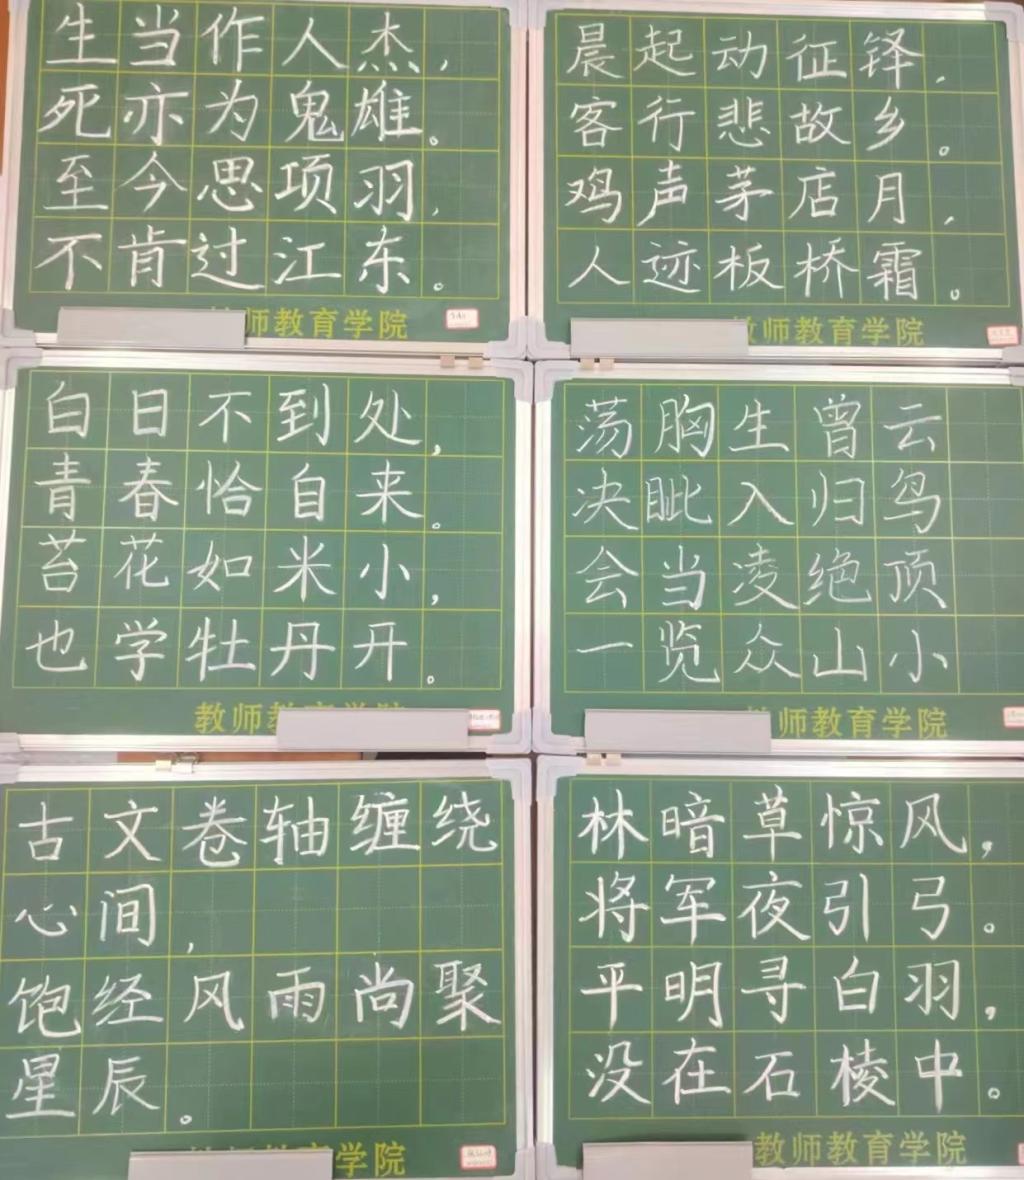 生当作人杰，
死亦为鬼雄。
至今思项羽，
不肯过江东。
师教育学院
晨起动征铎，
客行悲故乡。
鸡声茅店月，
人迹板桥霜。
教师教育学院
白日不到处，
青春恰自来。
苔花如米小，
也学牡丹开。
教师教育学院
荡胸生曾云
决眦入归鸟
会当凌绝顶
一览众山小
教师教育学院
古文卷轴缠绕
心间，
饱经风雨尚聚
星辰。
学院
林暗草惊风，
将军夜引弓。
平明寻白羽，
没在石棱中。
教师教育学院